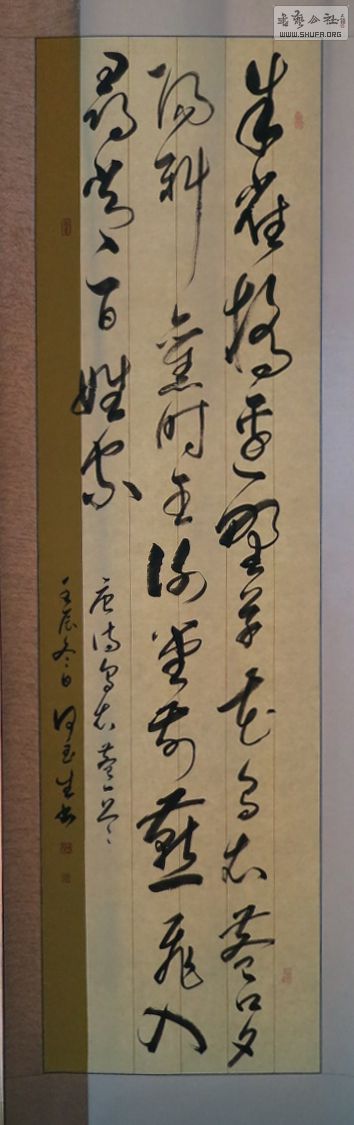 書藝公社
WWW.SHUFA.ORG
朱雀橋邊野草花烏衣巷口夕
陽斜舊时王謝堂前燕飛入
尋常百姓家
唐诗烏衣巷
壬辰冬日玉生书